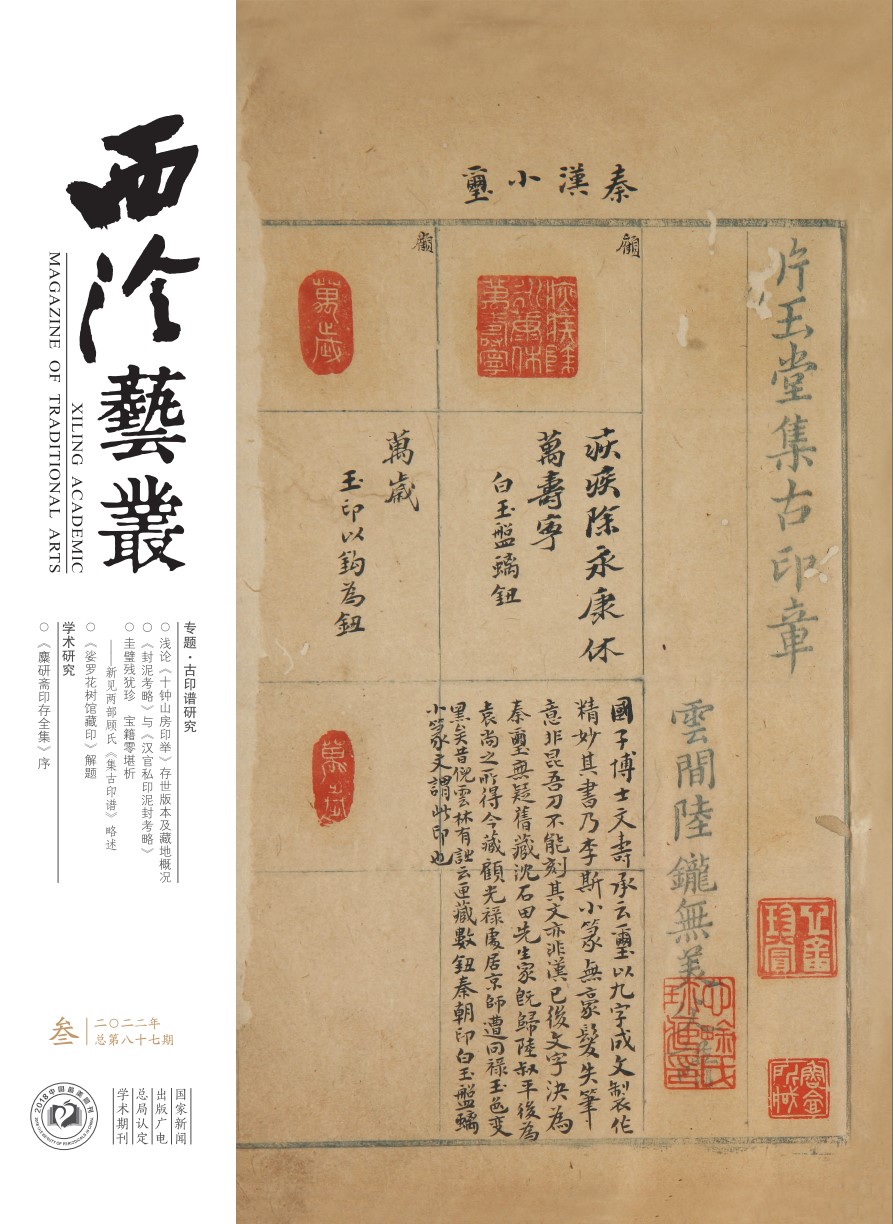 西泠
藝叢
MAGAZINE OF TRADITIONAL ARTS
XILING ACADEMIC
专题·古印谱研究
○ 浅论《十钟山房印举》存世版本及藏地概况
○ 《封泥考略》与《汉官私印泥封考略》
○ 圭璧残犹珍 宝籍零堪析
——新见两部顾氏《集古印谱》略述
○ 《娑罗花树馆藏印》解题
学术研究
○ 《麋研斋印存全集》序
叁
二〇二二年
总第八十七期
国家新闻
出版广电
总局认定
学术期刊
2018中国最美期刊
秦漢小璽
片玉堂集古印章
雲間陸鑨無美
顧
疢疾除永康休
萬壽寧
疢疾除永康休
萬壽寧
白玉盤螭鈕
國子博士文壽承云璽以九字成文製作
精妙其書乃李斯小篆無豪髮失筆
意非昆吾刀不能刻其文亦非漢已後文字決為
秦璽無疑舊藏沈石田先生家既歸陸叔平後為
袁尚之所得今藏顧光祿處居京師遭回祿玉色變
黑矣昔倪雲林有詘云匣藏數鈕秦朝印白玉盤螭
小篆文謂此印也
顧
萬歲
萬歲
玉印以鈎為鈕
萬歲